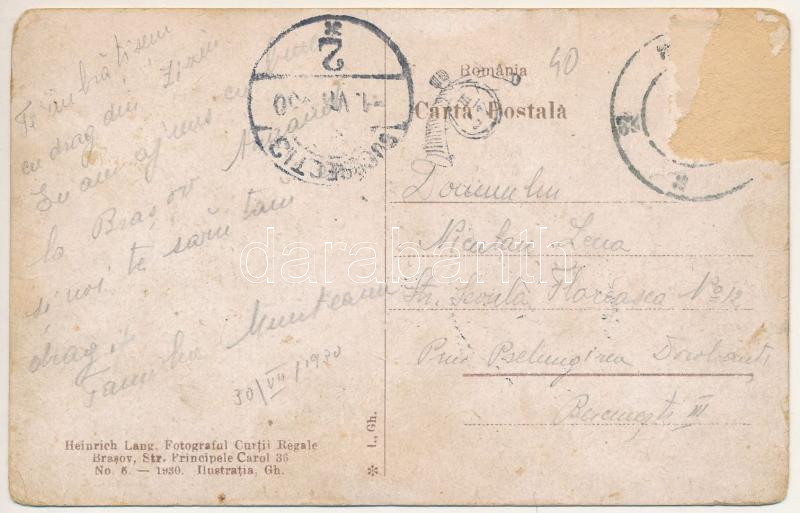 Te îmbrățișem
cu drag din Zizin
Eu am ajuns cu bine
la Brașov
și noi te sărutăm
drag
Familia Munteanu
30/VII/1930
Heinrich Lang, Fotograful Curții Regale
Brașov, Str. Principele Carol 36
No. 6. — 1930. Ilustrația, Gh.
* I., Gh.
* 2
1. VII 30
40
România
Carta Postala
Domnului
Niculau Lena
Str. Floreasca No 12
Prin Prelungirea Dorobanți
București III
darabanth